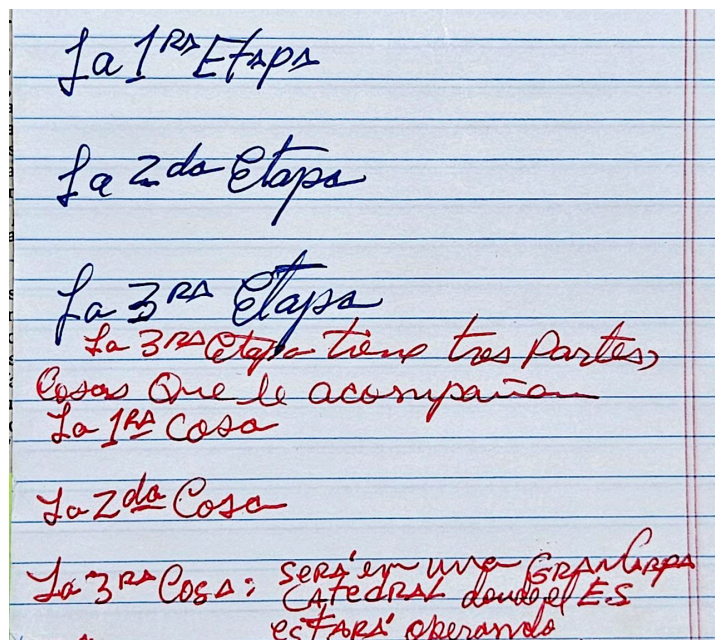 La 1RA Etapa
La 2da Etapa
La 3RA Etapa
La 3RA Etapa tiene tres Partes,
Cosas Que le acompañan
La 1RA Cosa
La 2da Cosa
La 3RA Cosa: SERÁ en una GRAN CARPA
CATEDRAL donde el ES
ESTARÁ operando